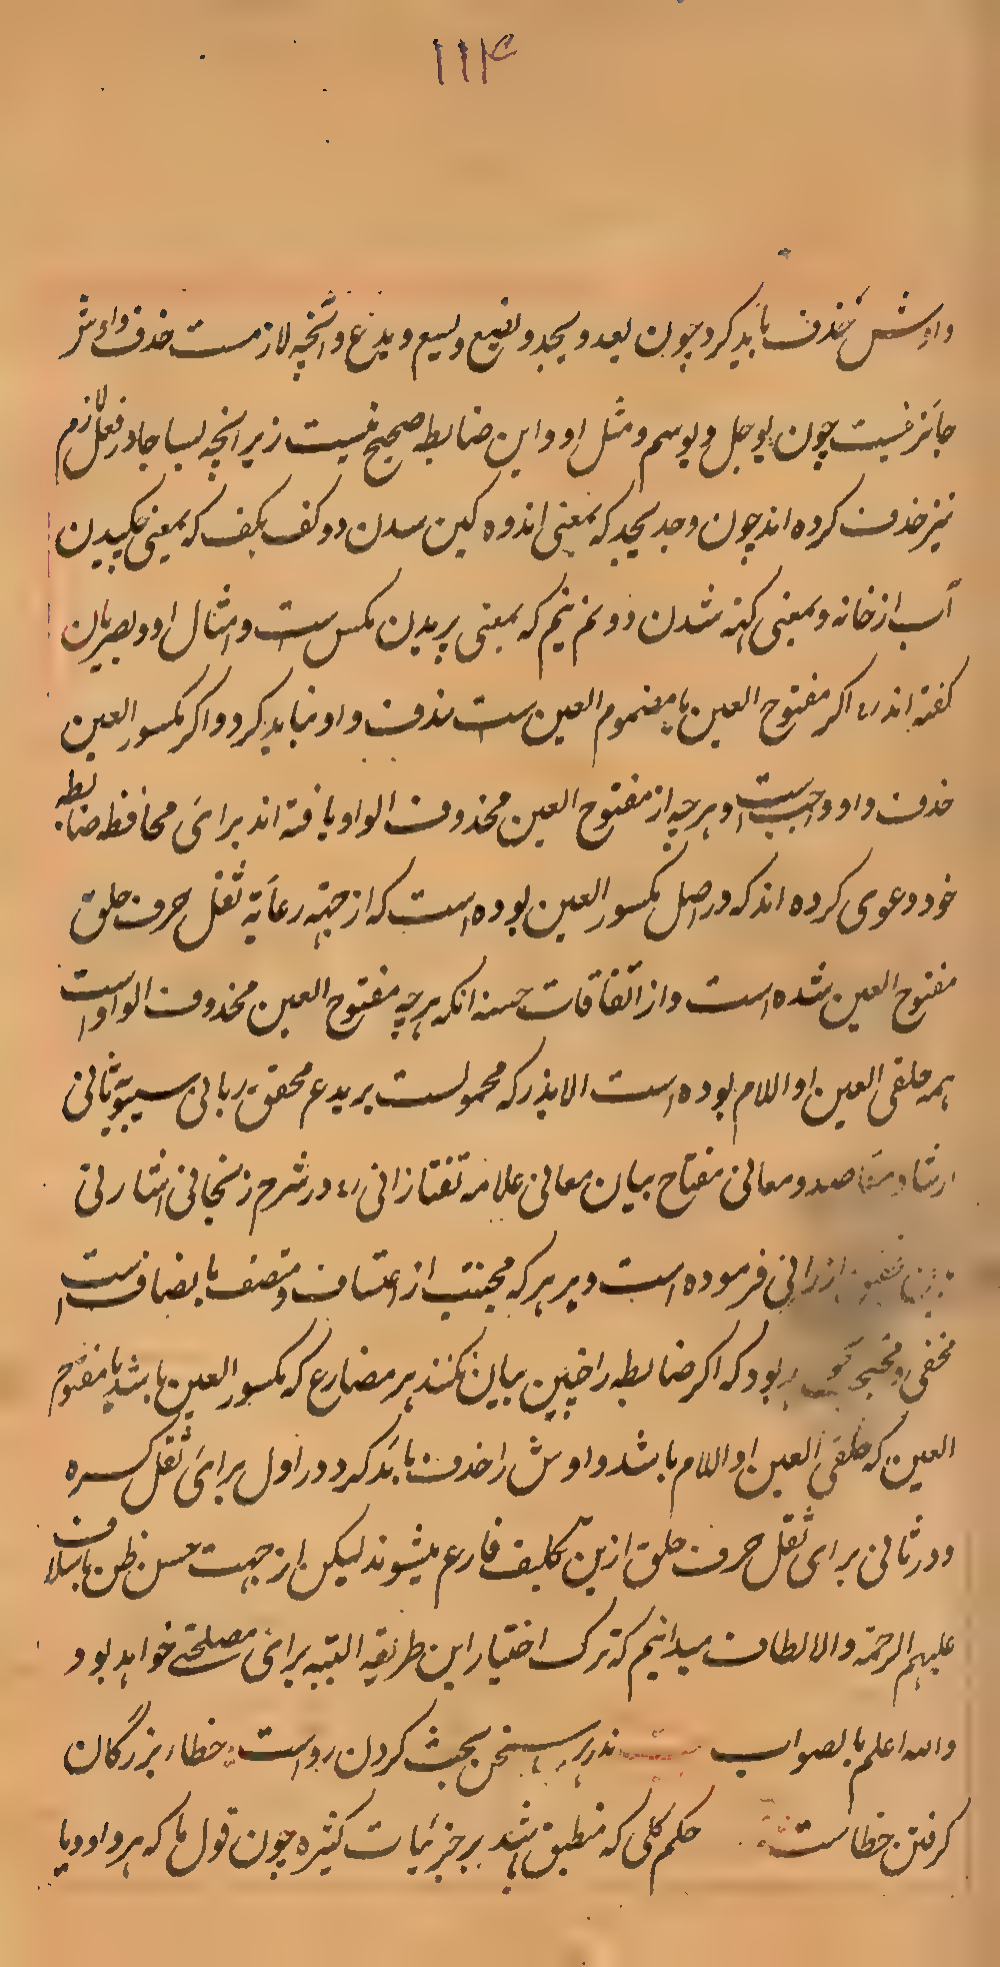 ۱۱۴
واوش حذف باید کرد چون یعد و یجد و یضع و یسع و یدع و آنچه لازمست حذف واوش
جائز نیست چون یوجل و یوسم و مثل او و این ضابطه صحیح نیست زیرا نچه بسا جا در فعل لازم
نیز حذف کرده اند چون وجد یجد که بمعنی اندوه کین شدن و وکف یکف که بمعنی چکیدن
آب از خانه و بمعنی کهنه شدن و ونم ینم که بمعنی پریدن مکس ست و امثال او و بصریان
کفته اند اکر مفتوح العین یا مضموم العین ست حذف واو نباید کرد و اکر مکسور العین
حذف واو واجب ست و هر چه از مفتوح العین محذوف الواو یافته اند برای محافظه ضابطه
خود دعوی کرده اند که در اصل مکسور العین بوده است که از جهة رعایة ثقل حرف حلق
مفتوح العین شده است و از اتفاقات حسنه انکه هر چه مفتوح العین محذوف الواو است
همه حلقی العین او اللام بوده است الا یذر که محمولست بر یدع محقق ربانی سیبویه ثانی
ارشاد مقاصد و معانی مفتاح بیان معانی علامه تفتازانی در شرح زنجانی اشارتی
فرموده است و بر هر که مجتنب از اعتساف و متصف بانصاف است
مخفی و محتجب نبود که اکر ضابطه را چنین بیان کنند هر مضارع که مکسور العین باشد یا مفتوح
العین که حلقی العین او اللام باشد واوش را حذف باید کرد در اول برای ثقل کسره
و در ثانی برای ثقل حرف حلق ازین تکلیف فارع میشوند لیکن از جهت حسن ظن باسلاف
علیهم الرحمة والالطاف میدانیم که ترک اختیار این طریقه البته برای مصلحتی خواهد بود
والله اعلم بالصواب بیت نه در هر سخن بحث کردن رواست خطاء بزرگان
کرفتن خطاست حکم کلی که منطبق باشد بر جزئیات کثیره چون قول ما که هر واو و یا